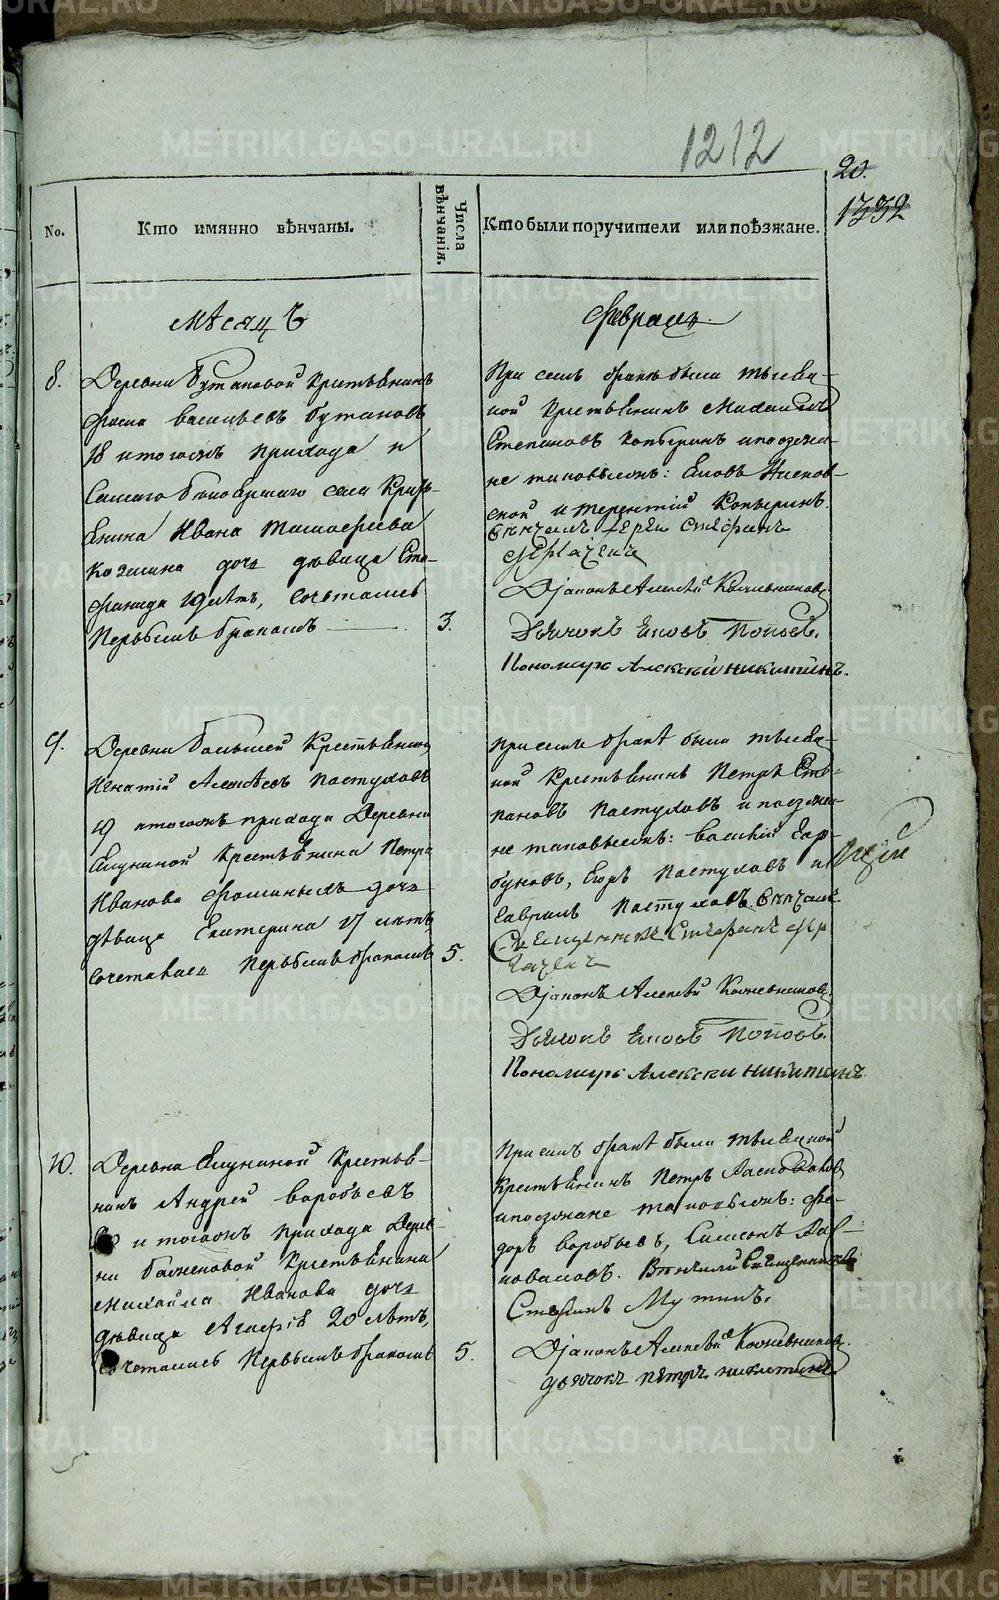 1212
20.
1332
No.
Кто имянно вѣнчаны.
Числа вѣнчанія.
Кто были поручители или поѣзжане.
мѣсяцъ
Февраль
8.
Деревни Бутаковой крестьянинъ
васильевъ Бутаковъ
18 и того жъ прихода и
села Кресть-
янина Ивана
дочь дѣвица Сте-
фанида 19 лѣтъ, сочетались
Первымъ бракомъ
3.
При семъ бракѣ были
крестьянинъ Михаилъ
Степановъ Копыринъ и поезжа-
не таковыежъ: Яковъ
и терентій Копыринъ.
вѣнчалъ Іерей Стефанъ
Діаконъ Алексей Кожевниковъ
Дьячокъ Яковъ Поповъ.
Пономарь Алексей никитинъ.
9.
Деревни большей Крестьянинъ
Игнатій Алексѣевъ Пастуховъ
19 и тогожъ прихода Деревни
Крестьянина Петра
Иванова дочь
дѣвица Екатерина 17 лѣтъ
сочетались Первымъ бракомъ
5.
При семъ бракѣ были
крестьянинъ Петръ Сте-
пановъ Пастуховъ и поезжа-
не таковыежъ: василій Гор-
буновъ, Егоръ Пастуховъ и
Гаврилъ Пастуховъ. вѣнчалъ
Священникъ Стефанъ
Діаконъ Алексей Кожевниковъ
Дьячокъ Яковъ Поповъ.
Пономарь Алексей никитинъ
10.
Деревни крестья-
нинъ Андрей воробьевъ
и тогожъ прихода Дерев-
ни Баженовой Крестьянина
Михайла Иванова дочь
дѣвица Агафія 20 лѣтъ,
сочетались Первымъ бракомъ
5.
При семъ бракѣ были
крестьянинъ Петръ
и поезжане таковыежъ: Фе-
доръ воробьевъ, Симеонъ
Вѣнчали Священникъ
Стефанъ Мутинъ.
Діаконъ Алексей Кожевниковъ.
дьячокъ петръ никитинъ
METRIKI.GASO-URAL.RU